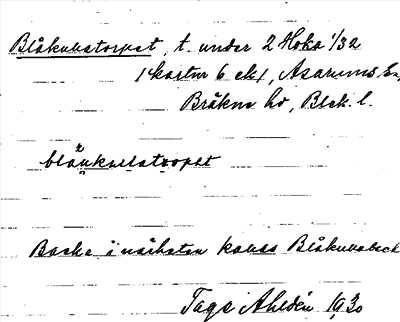 Blåkullatorpet, t. under 2 Hoka 1/32
1 kartnr 6 ek 1, Asarums sn,
Bräkne hd, Blek. l.
blåkullatorpet
Backe i närheten kallas Blåkullaback
Tage Ahldén 1930